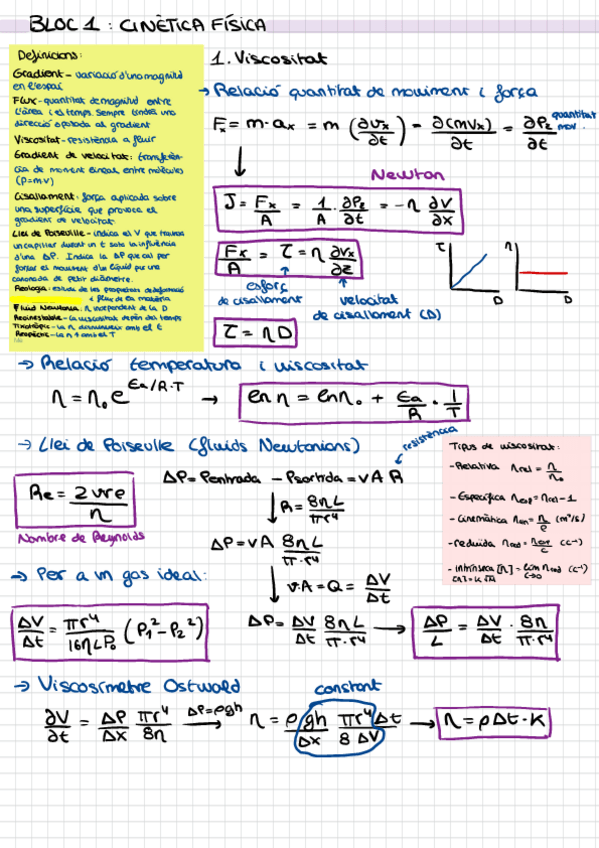 BLOC 1 : CINÈTICA FÍSICA
Definicions:
Gradient - variació d'una magnitud
en l'espai
Flux - quantitat de magnitud entre
l'àrea i el temps. Sempre tindrà una
direcció oposada al gradient
Viscositat - resistència a fluir
Gradient de velocitat: transferèn-
cia de moment lineal entre molècules
(P=mv)
Cisallament: força aplicada sobre
una superfície que provoca el
gradient de velocitat.
Llei de Poiseuille - indica el V que travessa
un capil·lar durant un t sota la influència
d'una ΔP. Indica la ΔP que cal per
forçar el moviment d'un líquid per una
canonada de petit diàmetre.
Reologia: estudi de les propietats de deformació
i flux de la matèria
Fluid Newtonià: η independent de la D
Reoinestable: la viscositat depèn del temps
Tixotròpic - la η disminueix amb el t
Reopèctic - la η ↑ amb el T
1. Viscositat
→ Relació quantitat de moviment i força
Fx = m·ax = m (∂vx/∂t) = ∂(mvx)/∂t = ∂Pz/∂t quantitat mov.
Newton
J = Fx/A = 1/A · ∂Pz/∂t = -η ∂v/∂x
Fx/A = τ = η ∂vx/∂z
esforç
de cisallament
velocitat
de cisallament (D)
τ = ηD
τ D
η D
→ Relació temperatura i viscositat
η = η₀ e^(Ea/R·T) → ln η = ln η₀ + Ea/R · 1/T
→ Llei de Poiseulle (fluids Newtonians)
resistència
Re = 2vrρ/η
Nombre de Reynolds
ΔP = Pentrada - Psortida = v A R
↓ R = 8ηL/πr⁴
ΔP = v A 8ηL/π·r⁴
↓ v·A = Q = ΔV/Δt
ΔP = ΔV/Δt 8ηL/π·r⁴ → ΔP/L = ΔV/Δt · 8η/π·r⁴
Tipus de viscositat:
- Relativa ηrel = η/η₀
- Específica ηesp = ηrel - 1
- Cinemàtica ηcin = η/ρ (m²/s)
- reduida ηred = ηesp/c (c⁻¹)
- intrínseca [η] = lim c→0 ηred (c⁻¹)
→ Per a un gas ideal:
ΔV/Δt = πr⁴/16ηLP₀ (P₁² - P₂²)
→ Viscosímetre Ostwald
constant
∂V/∂t = ΔP/Δx πr⁴/8η ΔP=ρgh → η = ρ gh/Δx πr⁴/8ΔV Δt → η = ρΔt·K